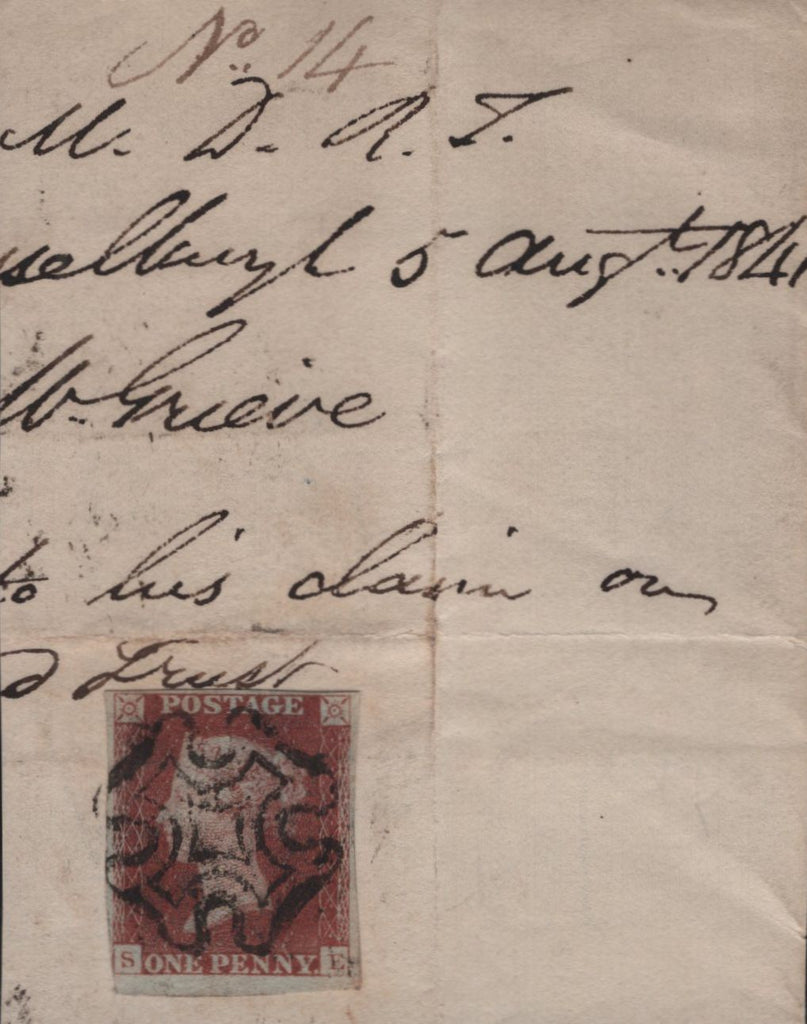 No. 14
M. D. R. T.
selburgh 5 Augt. 1841
W. Grieve
to his claim on
d Trust
POSTAGE
S ONE PENNY E